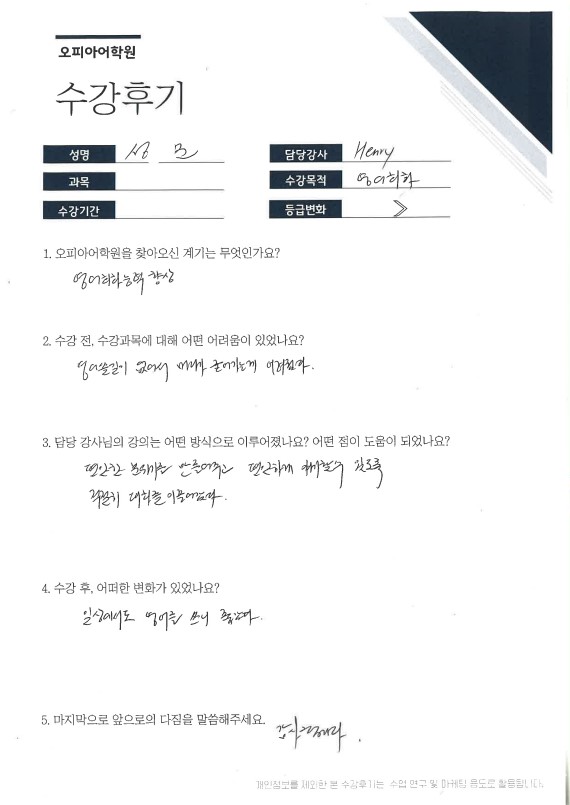 오피아어학원
수강후기
성명 성 모 담당강사 Henry
과목 수강목적 영어회화
수강기간 등급변화
1. 오피아어학원을 찾아오신 계기는 무엇인가요?
영어회화능력 향상
2. 수강 전, 수강과목에 대해 어떤 어려움이 있었나요?
영어쓸일이 없어서 어려웠다.
3. 담당 강사님의 강의는 어떤 방식으로 이루어졌나요? 어떤 점이 도움이 되었나요?
편안한 분위기를 만들어주고 편안하게 있도록
적절히 대화를 이끌어준다.
4. 수강 후, 어떠한 변화가 있었나요?
일상에서도 영어를 쓰니 좋았다.
5. 마지막으로 앞으로의 다짐을 말씀해주세요.
개인정보를 제외한 본 수강후기는 수업 연구 및 마케팅 용도로 활용됩니다.